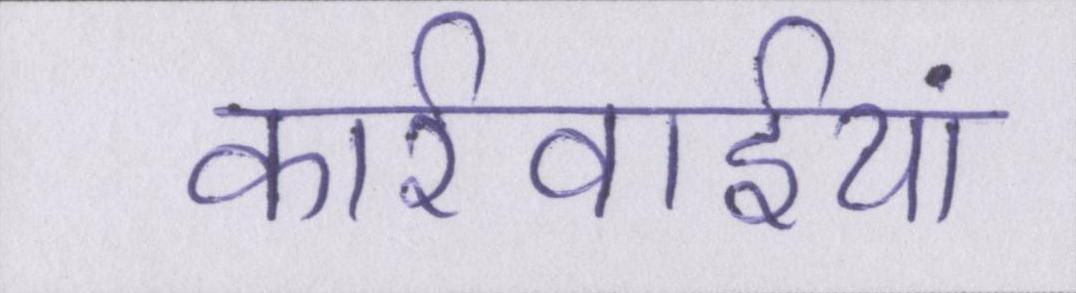 कार्रवाईयां